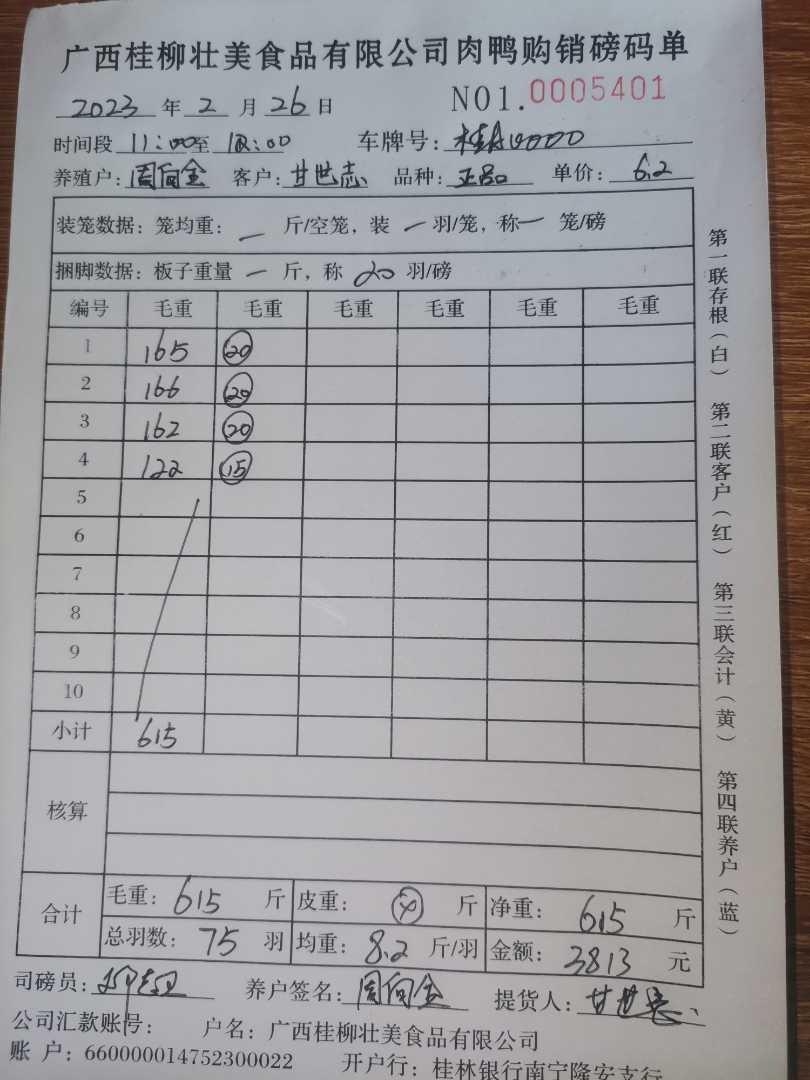 广西桂柳壮美食品有限公司肉鸭购销磅码单
2023 年 2 月 26 日 NO1.0005401
时间段 11:00至 12:00 车牌号: 桂A00000
养殖户: 周向金 客户: 甘世志 品种: 正品 单价: 6.2
装笼数据: 笼均重: — 斤/空笼, 装 — 羽/笼, 称 — 笼/磅
捆脚数据: 板子重量 — 斤, 称 20 羽/磅
编号 毛重 毛重 毛重 毛重 毛重 毛重
1 165 20
2 166 20
3 162 20
4 122 15
5
6
7
8
9
10
小计 615
核算
合计 毛重: 615 斤 皮重: 斤 净重: 615 斤
总羽数: 75 羽 均重: 8.2 斤/羽 金额: 3813 元
司磅员: 养户签名: 周向金 提货人: 甘世志
公司汇款账号: 户名: 广西桂柳壮美食品有限公司
账 户: 660000014752300022 开户行: 桂林银行南宁隆安支行
第一联存根(白) 第二联客户(红) 第三联会计(黄) 第四联养户(蓝)